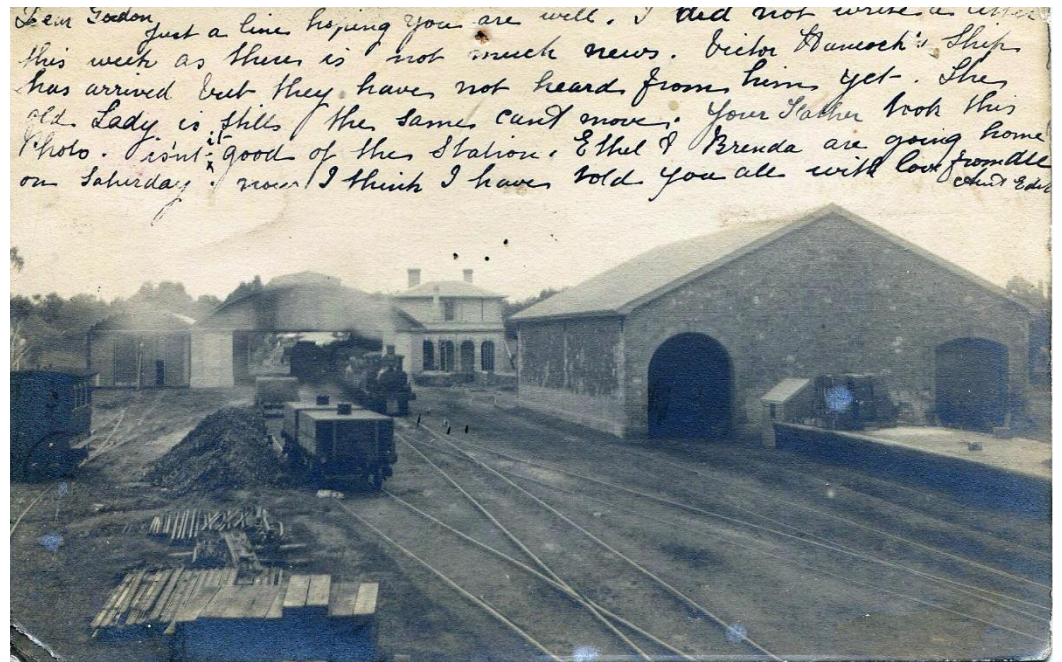 Dear Gordon,
Just a line hoping you are well. I did not write a letter
this week as there is not much news. Victor Hancock's Ship
has arrived but they have not heard from him yet. The
old Lady is still the same cant move. Your Father took this
Photo. isn't it good of the Station. Ethel & Brenda are going home
on Saturday now I think I have told you all with love from all
Aunt Edith